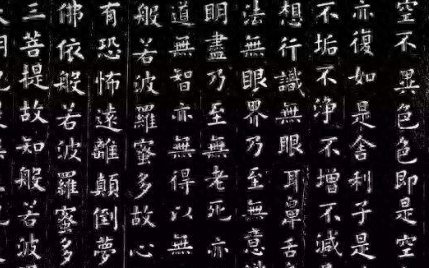 空不異色色即是空
亦復如是舍利子是
不垢不淨不增不減
想行識無眼耳鼻舌
法無眼界乃至無意
明盡乃至無老死亦
道無智亦無得以無
般若波羅蜜多故心
有恐怖遠離顛倒夢
佛依般若波羅蜜多
三菩提故知般若波